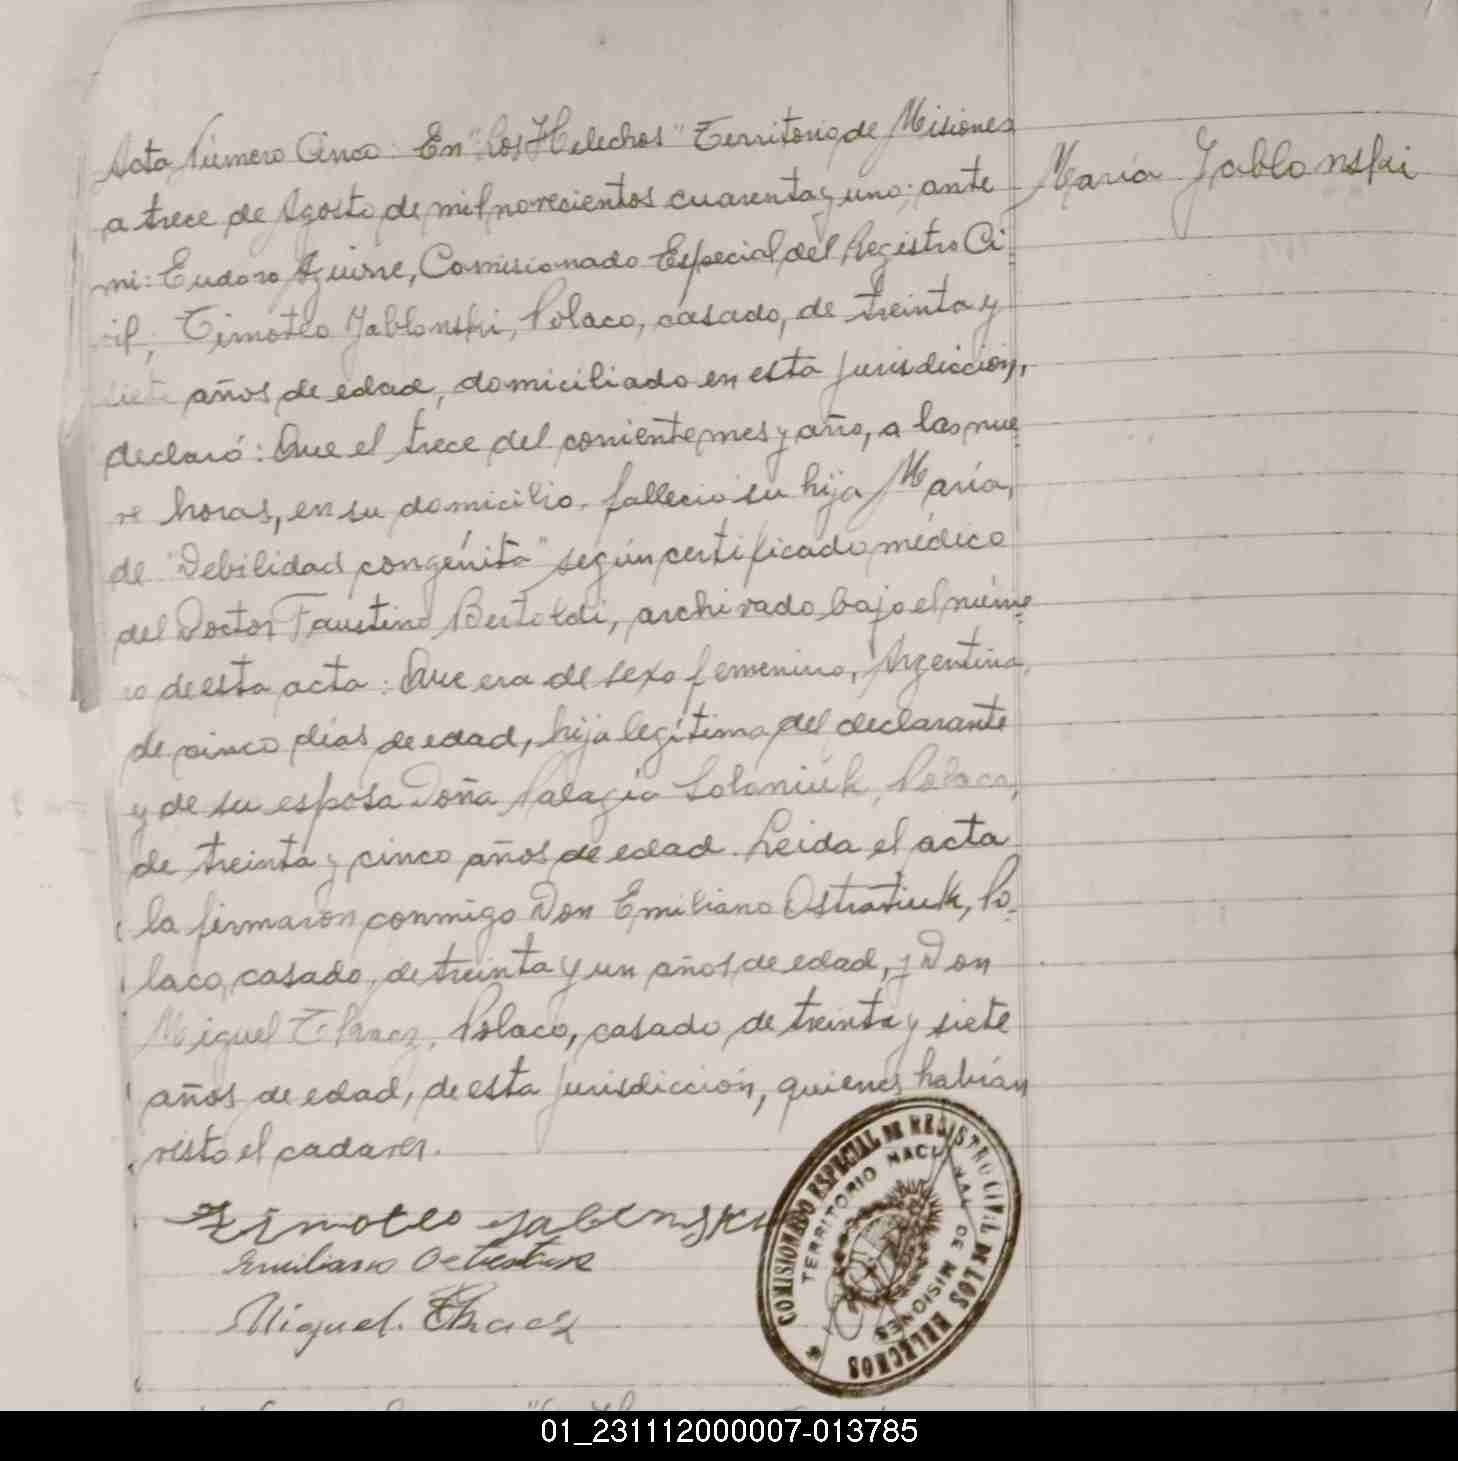 Acta Número Cinco: En "Los Helechos" Territorio de Misiones
a trece de Agosto de mil novecientos cuarenta y uno; ante
María Jablonski
mi: Eudoro Aguirre, Comisionado Especial del Registro Ci-
vil, Timoteo Jablonski, Polaco, casado, de treinta y
siete años de edad, domiciliado en esta jurisdicción,
declaró: Que el trece del corriente mes y año, a las nue-
ve horas, en su domicilio. falleció su hija María,
de "Debilidad congénita" según certificado médico
del Doctor Faustino Bertoldi, archivado bajo el núme-
ro de esta acta: Que era de sexo femenino, Argentina,
de cinco días de edad, hija legítima del declarante
y de su esposa Doña Palagia Solaniuk, Polaca,
de treinta y cinco años de edad. Leida el acta
la firmaron conmigo Don Emiliano Ostratiuk, Po-
laco, casado, de treinta y un años de edad, y Don
Miguel Tkacz, Polaco, casado de treinta y siete
años de edad, de esta jurisdicción, quienes habían
visto el cadaver.
Timoteo Jablonski
Emiliano
Miguel. Tkacz
COMISIONADO ESPECIAL DE REGISTRO CIVIL DE LOS HELECHOS
TERRITORIO NACIONAL DE MISIONES
01_231112000007-013785